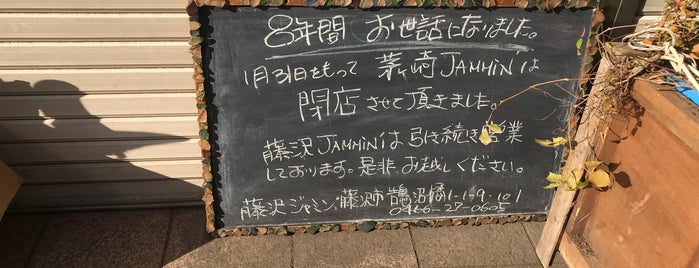 8年間 お世話になりました。
1月31日をもって 茅ヶ崎JAMMINは
閉店させて頂きました。
藤沢JAMMINは引き続き営業
しております。是非お越しください。
藤沢ジャミン 藤沢市鵠沼橘1-1-9・101
0466-27-0605